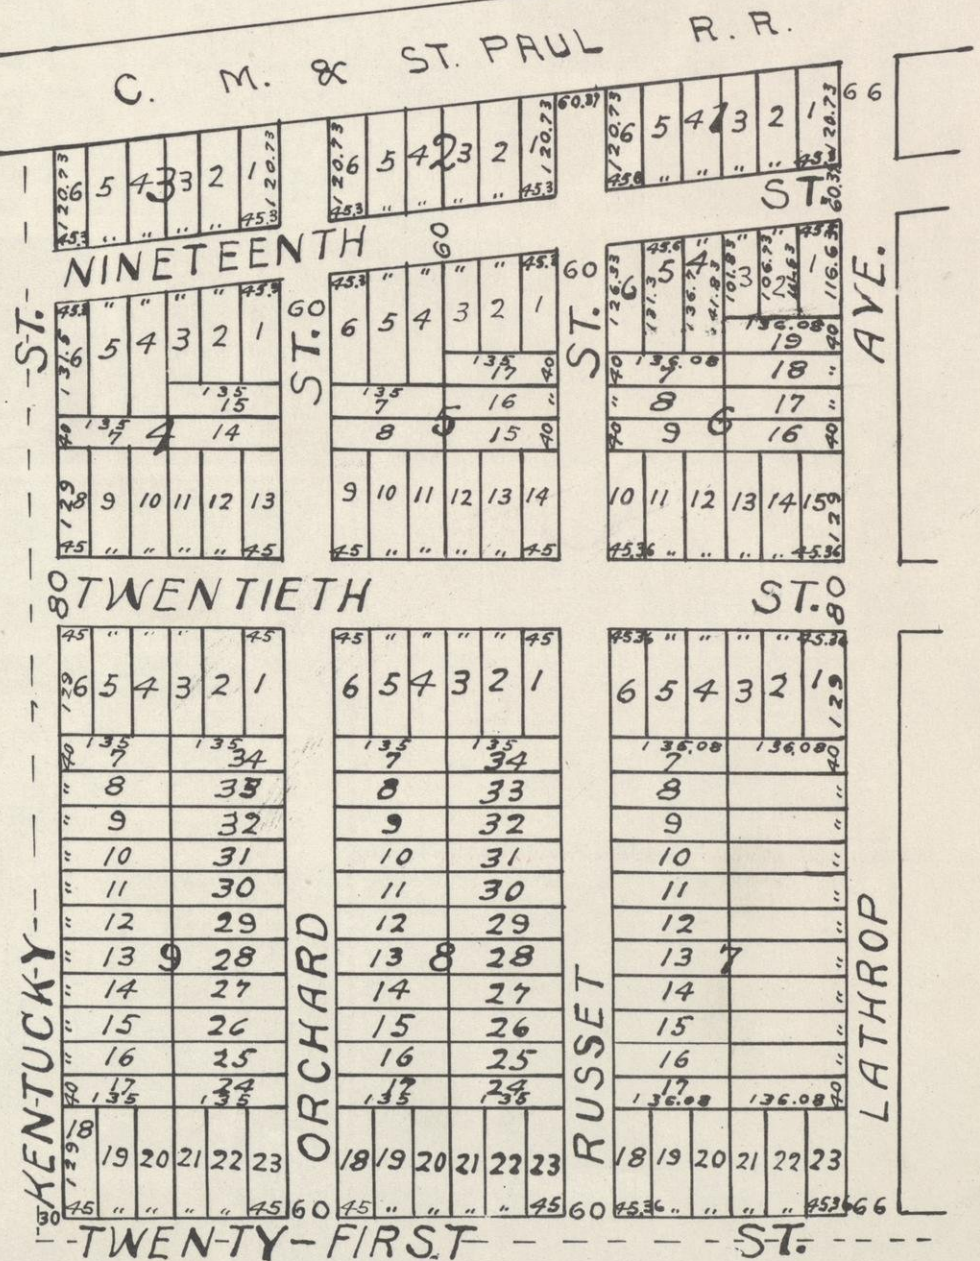 C. M. & ST. PAUL R. R.
120.73 6 5 4 3 3 2 1 120.73
45.3 " " " " 45.3
120.73 6 5 4 2 3 2 1 120.73
" " " 45.3
60.37
120.73 6 5 4 1 3 2 1 120.73
45.6 " " " "
66
NINETEENTH ST.
60
45.3 " " " " 45.3
131.5 6 5 4 3 2 1
135
15
40 135
7 4 14
129 8 9 10 11 12 13
45 " " " " 45
60
45.3 " " " "
6 5 4 3 2 1
135
17 40
135
7 5 16 "
8 15 40
9 10 11 12 13 14
45 " " " " 45
60
45.6 " "
126.53 6 131.3 5 136.7 4 141.83 101.83 3 106.73 2 1 116.63
136.08
19 40
40 136.08
7 18 "
" 8 6 17 "
40 9 16 40
10 11 12 13 14 15 129
45.36 " " " " 45.36
80 TWENTIETH ST. 80
45 " " " " 45
129 6 5 4 3 2 1
40 135 135
7 34
" 8 33
" 9 32
" 10 31
" 11 30
" 12 29
" 13 9 28
" 14 27
" 15 26
" 16 25
40 17 24
135 135
129 18 19 20 21 22 23
45 " " " " 45
45 " " " " 45
6 5 4 3 2 1
135 135
7 34
8 33
9 32
10 31
11 30
12 29
13 8 28
14 27
15 26
16 25
17 24
135 135
18 19 20 21 22 23
45 " " " " 45
45.36 " " " " 45.36
6 5 4 3 2 1 129
136.08 136.08
7 40
8 "
9 "
10 "
11 "
12 "
13 7 "
14 "
15 "
16 "
17 40
136.08 136.08
18 19 20 21 22 23
45.36 " " " " 45.36
30 60 60 66
KENTUCKY ST.
ORCHARD ST.
RUSSET ST.
LATHROP AVE.
TWENTY-FIRST ST.